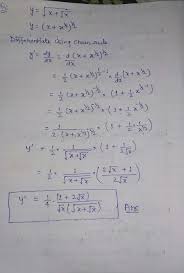 y = √(x + √x)
y = (x + x^½)^½
Differentiate using Chain rule
y' = dy/dx = d/dx (x + x^½)^½
= 1/2 (x + x^½)^(½-1) · d/dx (x + x^½)
= 1/2 (x + x^½)^(-½) · (1 + 1/2 x^(½-1))
= 1/2 (x + x^½)^(-½) · (1 + 1/2 x^(-½))
= 1/(2 (x + x^½)^½) · (1 + 1/2 · 1/x^½)
y' = 1/2 · 1/√(x + √x) × (1 + 1/(2√x))
= 1/2 · 1/√(x + √x) × (2√x + 1)/(2√x)
y' = 1/4 · (1 + 2√x)/(√x (√(x + √x))) Ans